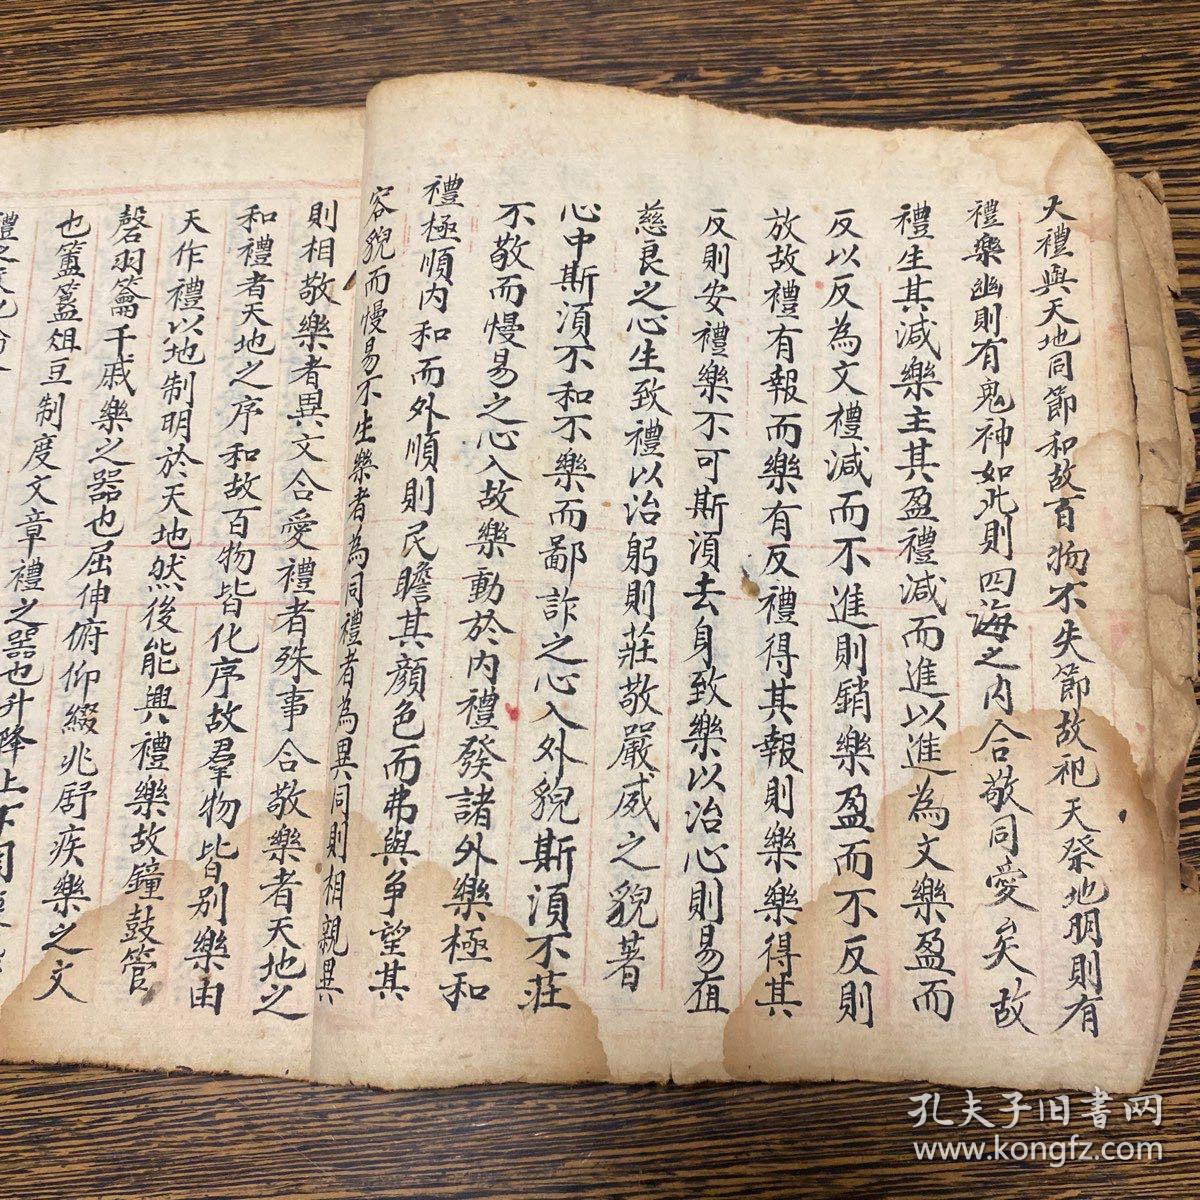 大禮與天地同節和故百物不失節故祀天祭地明則有
禮樂幽則有鬼神如此則四海之內合敬同愛矣故
禮生其減樂主其盈禮減而進以進為文樂盈而
反以反為文禮減而不進則銷樂盈而不反則
放故禮有報而樂有反禮得其報則樂樂得其
反則安禮樂不可斯湏去身致樂以治心則易直
慈良之心生致禮以治躬則莊敬嚴威之貌著
心中斯湏不和不樂而鄙詐之心入外貌斯湏不莊
不敬而慢易之心入故樂動於內禮發諸外樂極和
禮極順內和而外順則民瞻其顏色而弗與爭望其
容貌而慢易不生樂者為同禮者為異同則相親異
則相敬樂者異文合愛禮者殊事合敬樂者天地之
和禮者天地之序和故百物皆化序故羣物皆別樂由
天作禮以地制明於天地然後能興禮樂故鐘鼓管
磬羽籥干戚樂之器也屈伸俯仰綴兆舒疾樂之文
也簠簋俎豆制度文章禮之器也升降上下
孔夫子旧書网
www.kongfz.com